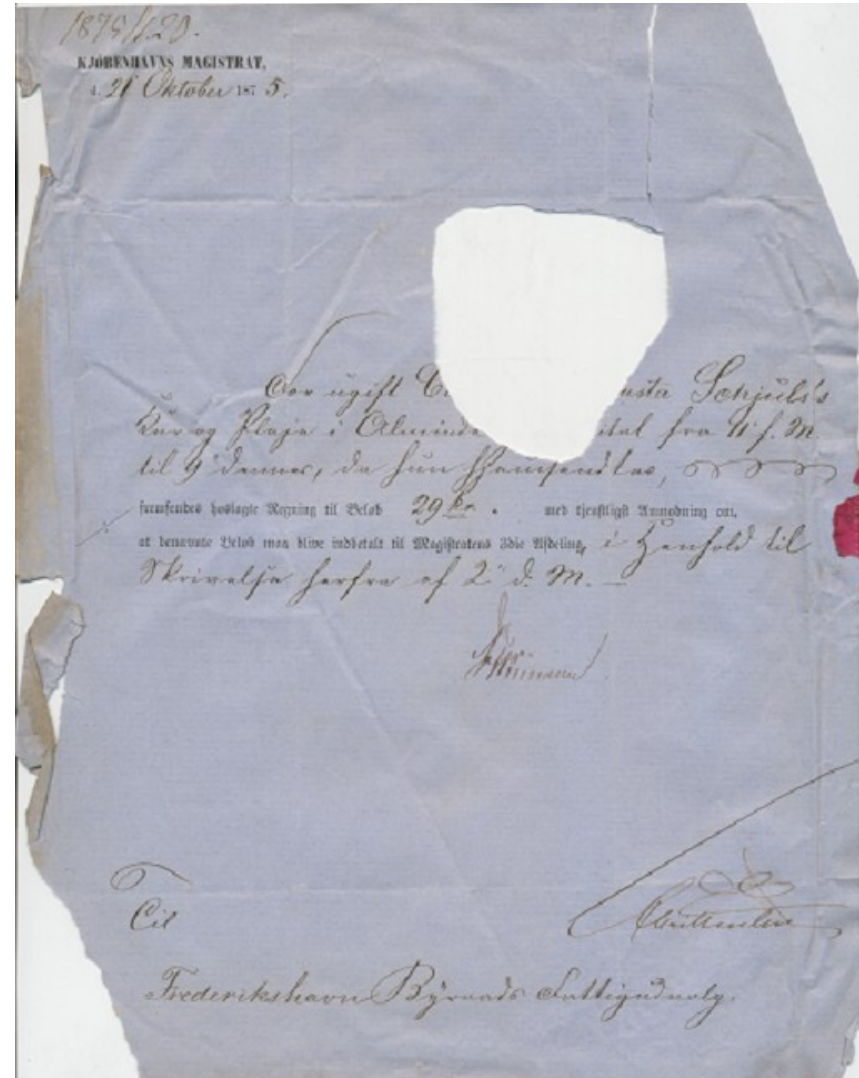 1875/120.
KJØBENHAVNS MAGISTRAT,
d. 21 Oktober 1875.
For ugift usta Schjuls's
Kur og Pleje i Alminde itel fra 11 f. M.
til 9 dennes, da hun hjemsendtes,
fremsendes hoslagte Regning til Beløb 29 Kr. med tjenstligst Anmodning om,
at benævnte Beløb maa blive indbetalt til Magistratens 3die Afdeling, i Henhold til
Skrivelse herfra af 2 d. M.
Til
Frederikshavn Byraads Fattigudvalg.